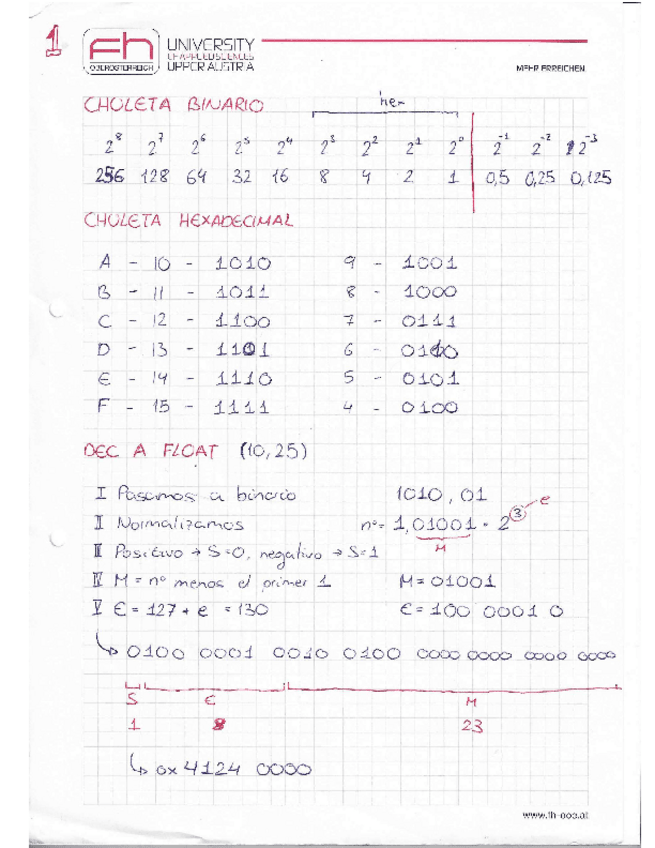 1
fh
OBERÖSTERREICH
UNIVERSITY
OF APPLIED SCIENCES
UPPER AUSTRIA
MEHR ERREICHEN
CHULETA BINARIO
2^8 2^7 2^6 2^5 2^4 2^3 2^2 2^1 2^0 2^-1 2^-2 2^-3
256 128 64 32 16 8 4 2 1 0,5 0,25 0,125
CHULETA HEXADECIMAL
A - 10 - 1010 9 - 1001
B - 11 - 1011 8 - 1000
C - 12 - 1100 7 - 0111
D - 13 - 1101 6 - 0110
E - 14 - 1110 5 - 0101
F - 15 - 1111 4 - 0100
DEC A FLOAT (10,25)
I Pasamos a binario 1010,01
II Normalizamos nº= 1,01001 · 2^3 e
M
III Positivo → S=0, negativo → S=1
IV M = nº menos el primer 1 M = 01001
V E = 127 + e = 130 E = 100 0001 0
↳ 0100 0001 0010 0100 0000 0000 0000 0000
S E M
1 8 23
↳ 0x 4124 0000